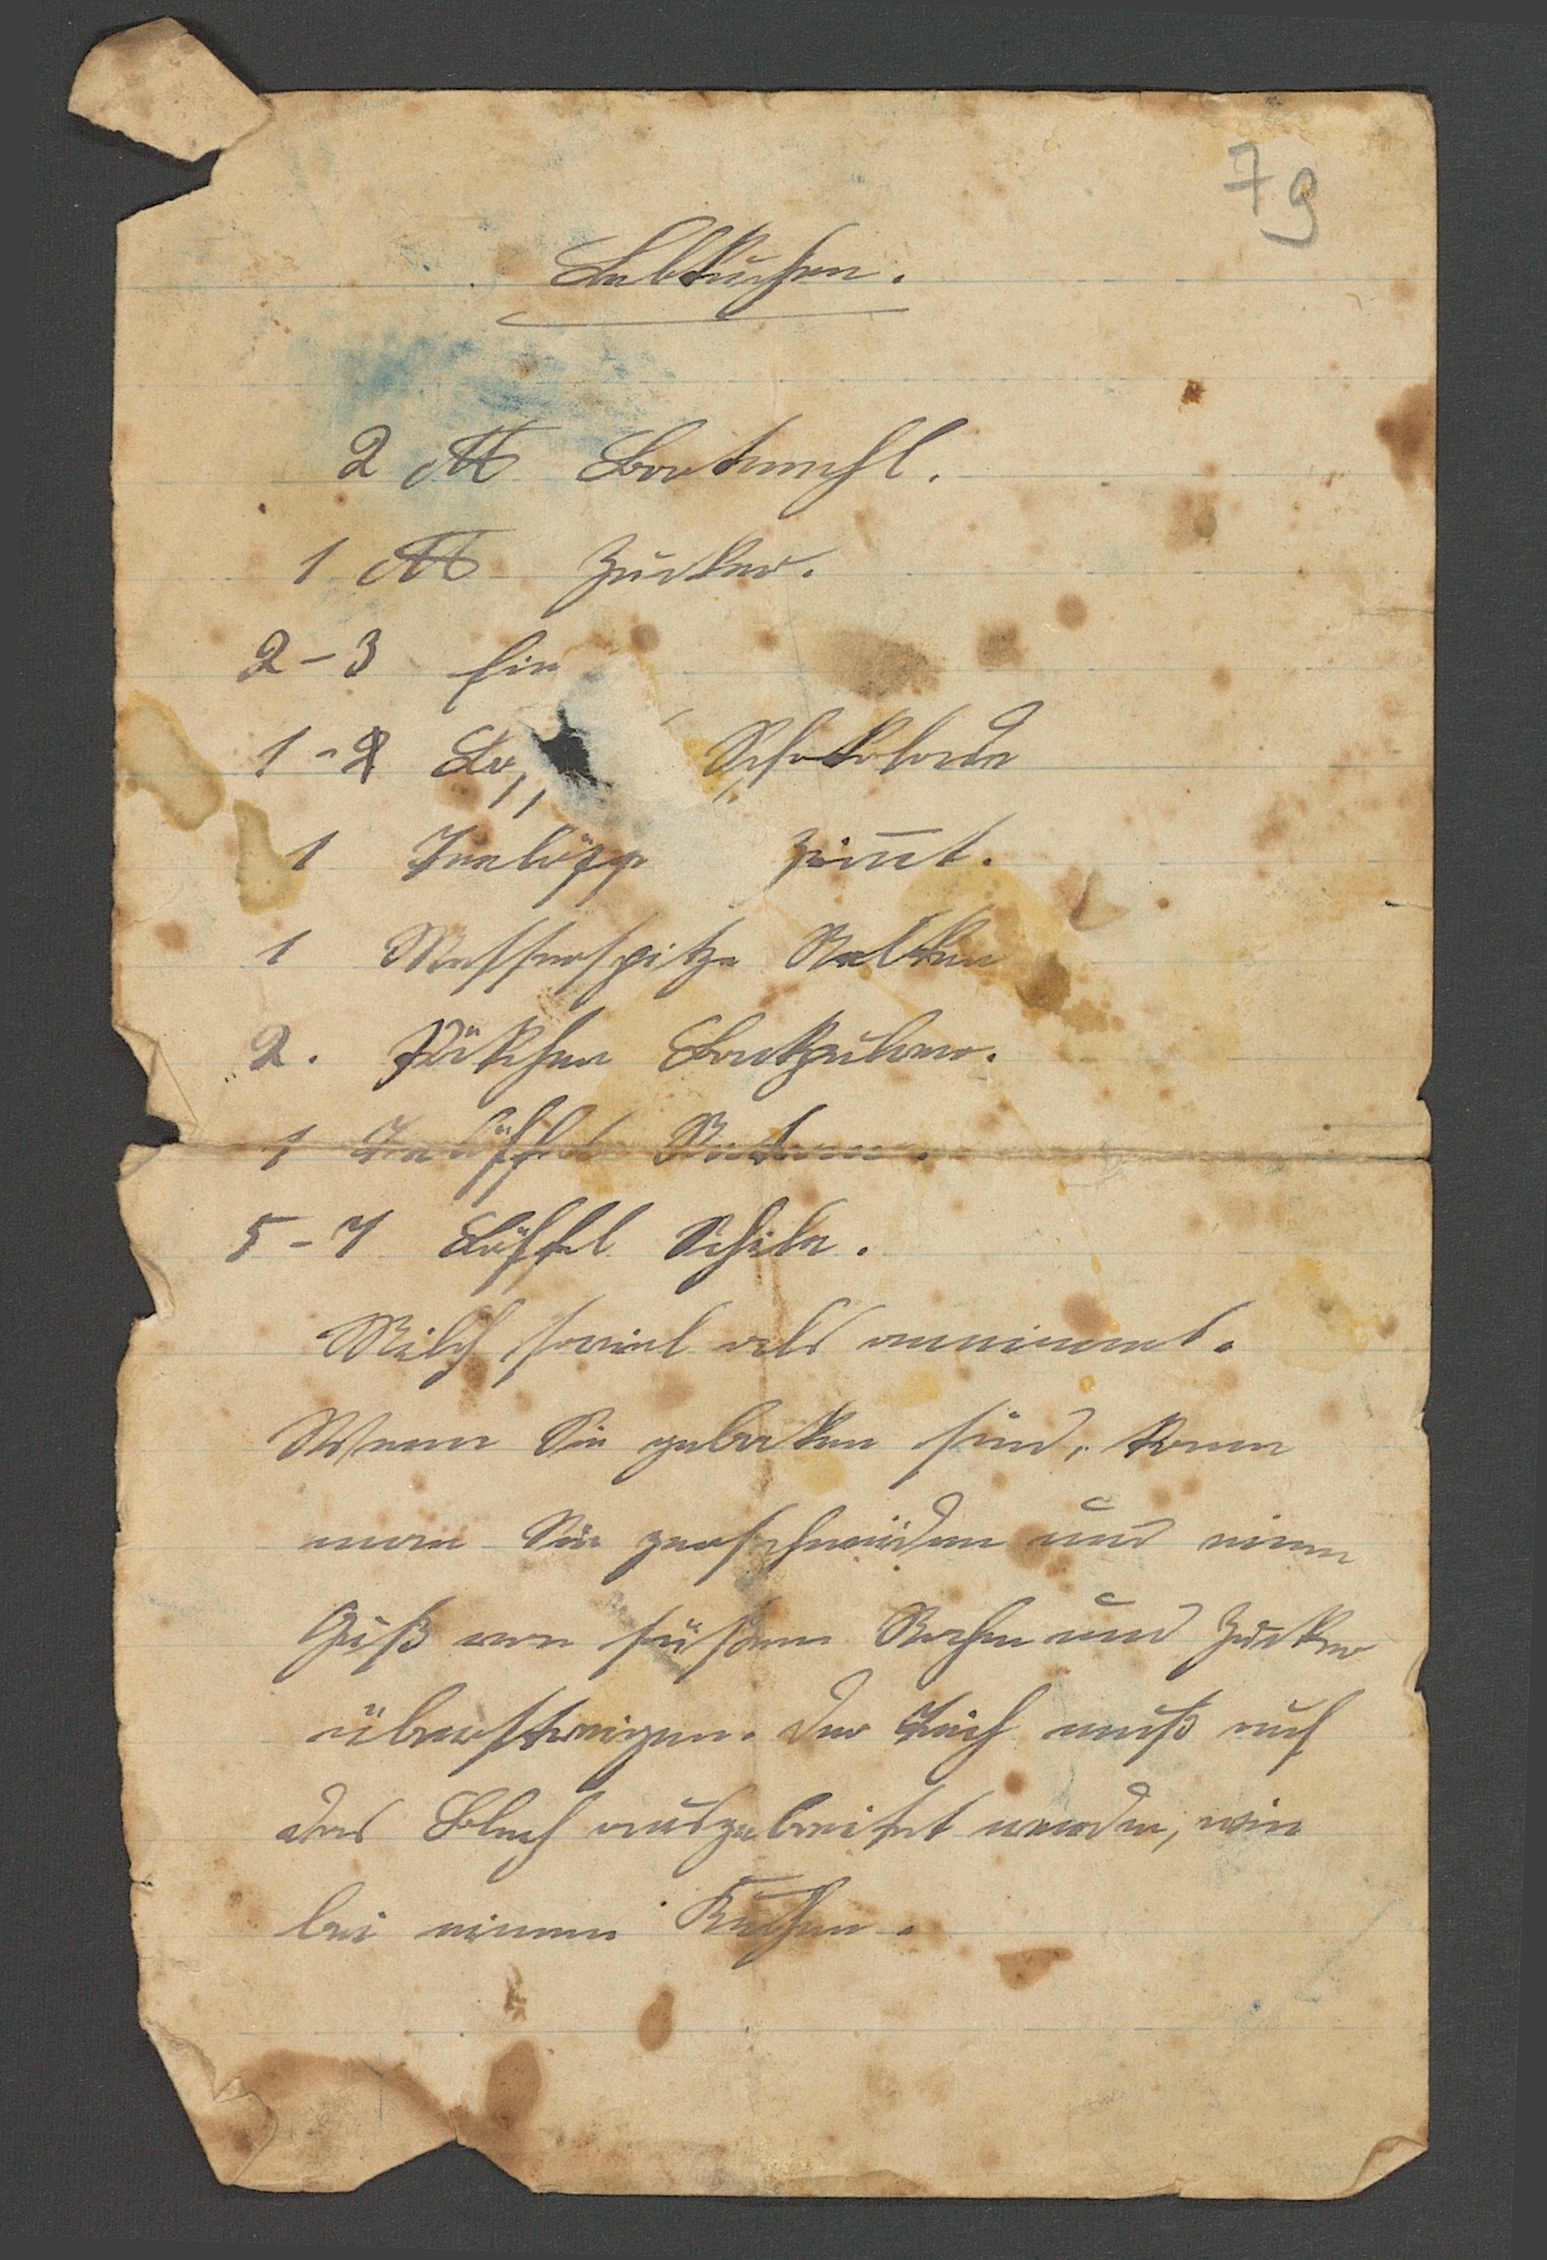 79
Lebkuchen.
2 ℔ Brotmehl.
1 ℔ Zucker.
2-3 Eier
1-2 Schokolade
1 Teelöff Zimt.
1 Messerspitze Nelken
2. Päkchen Backpulver.
1 Teelöffel Natron.
5-7 Löffel
Milch soviel als annimmt.
Wenn Sie gebacken sind, kann
man Sie zerschneiden und einen
Guß von süßem Rahm und Zucker
übersteigen. Der Teich muß auf
das Blech ausgebreitet werden, wie
bei einem Kuchen.